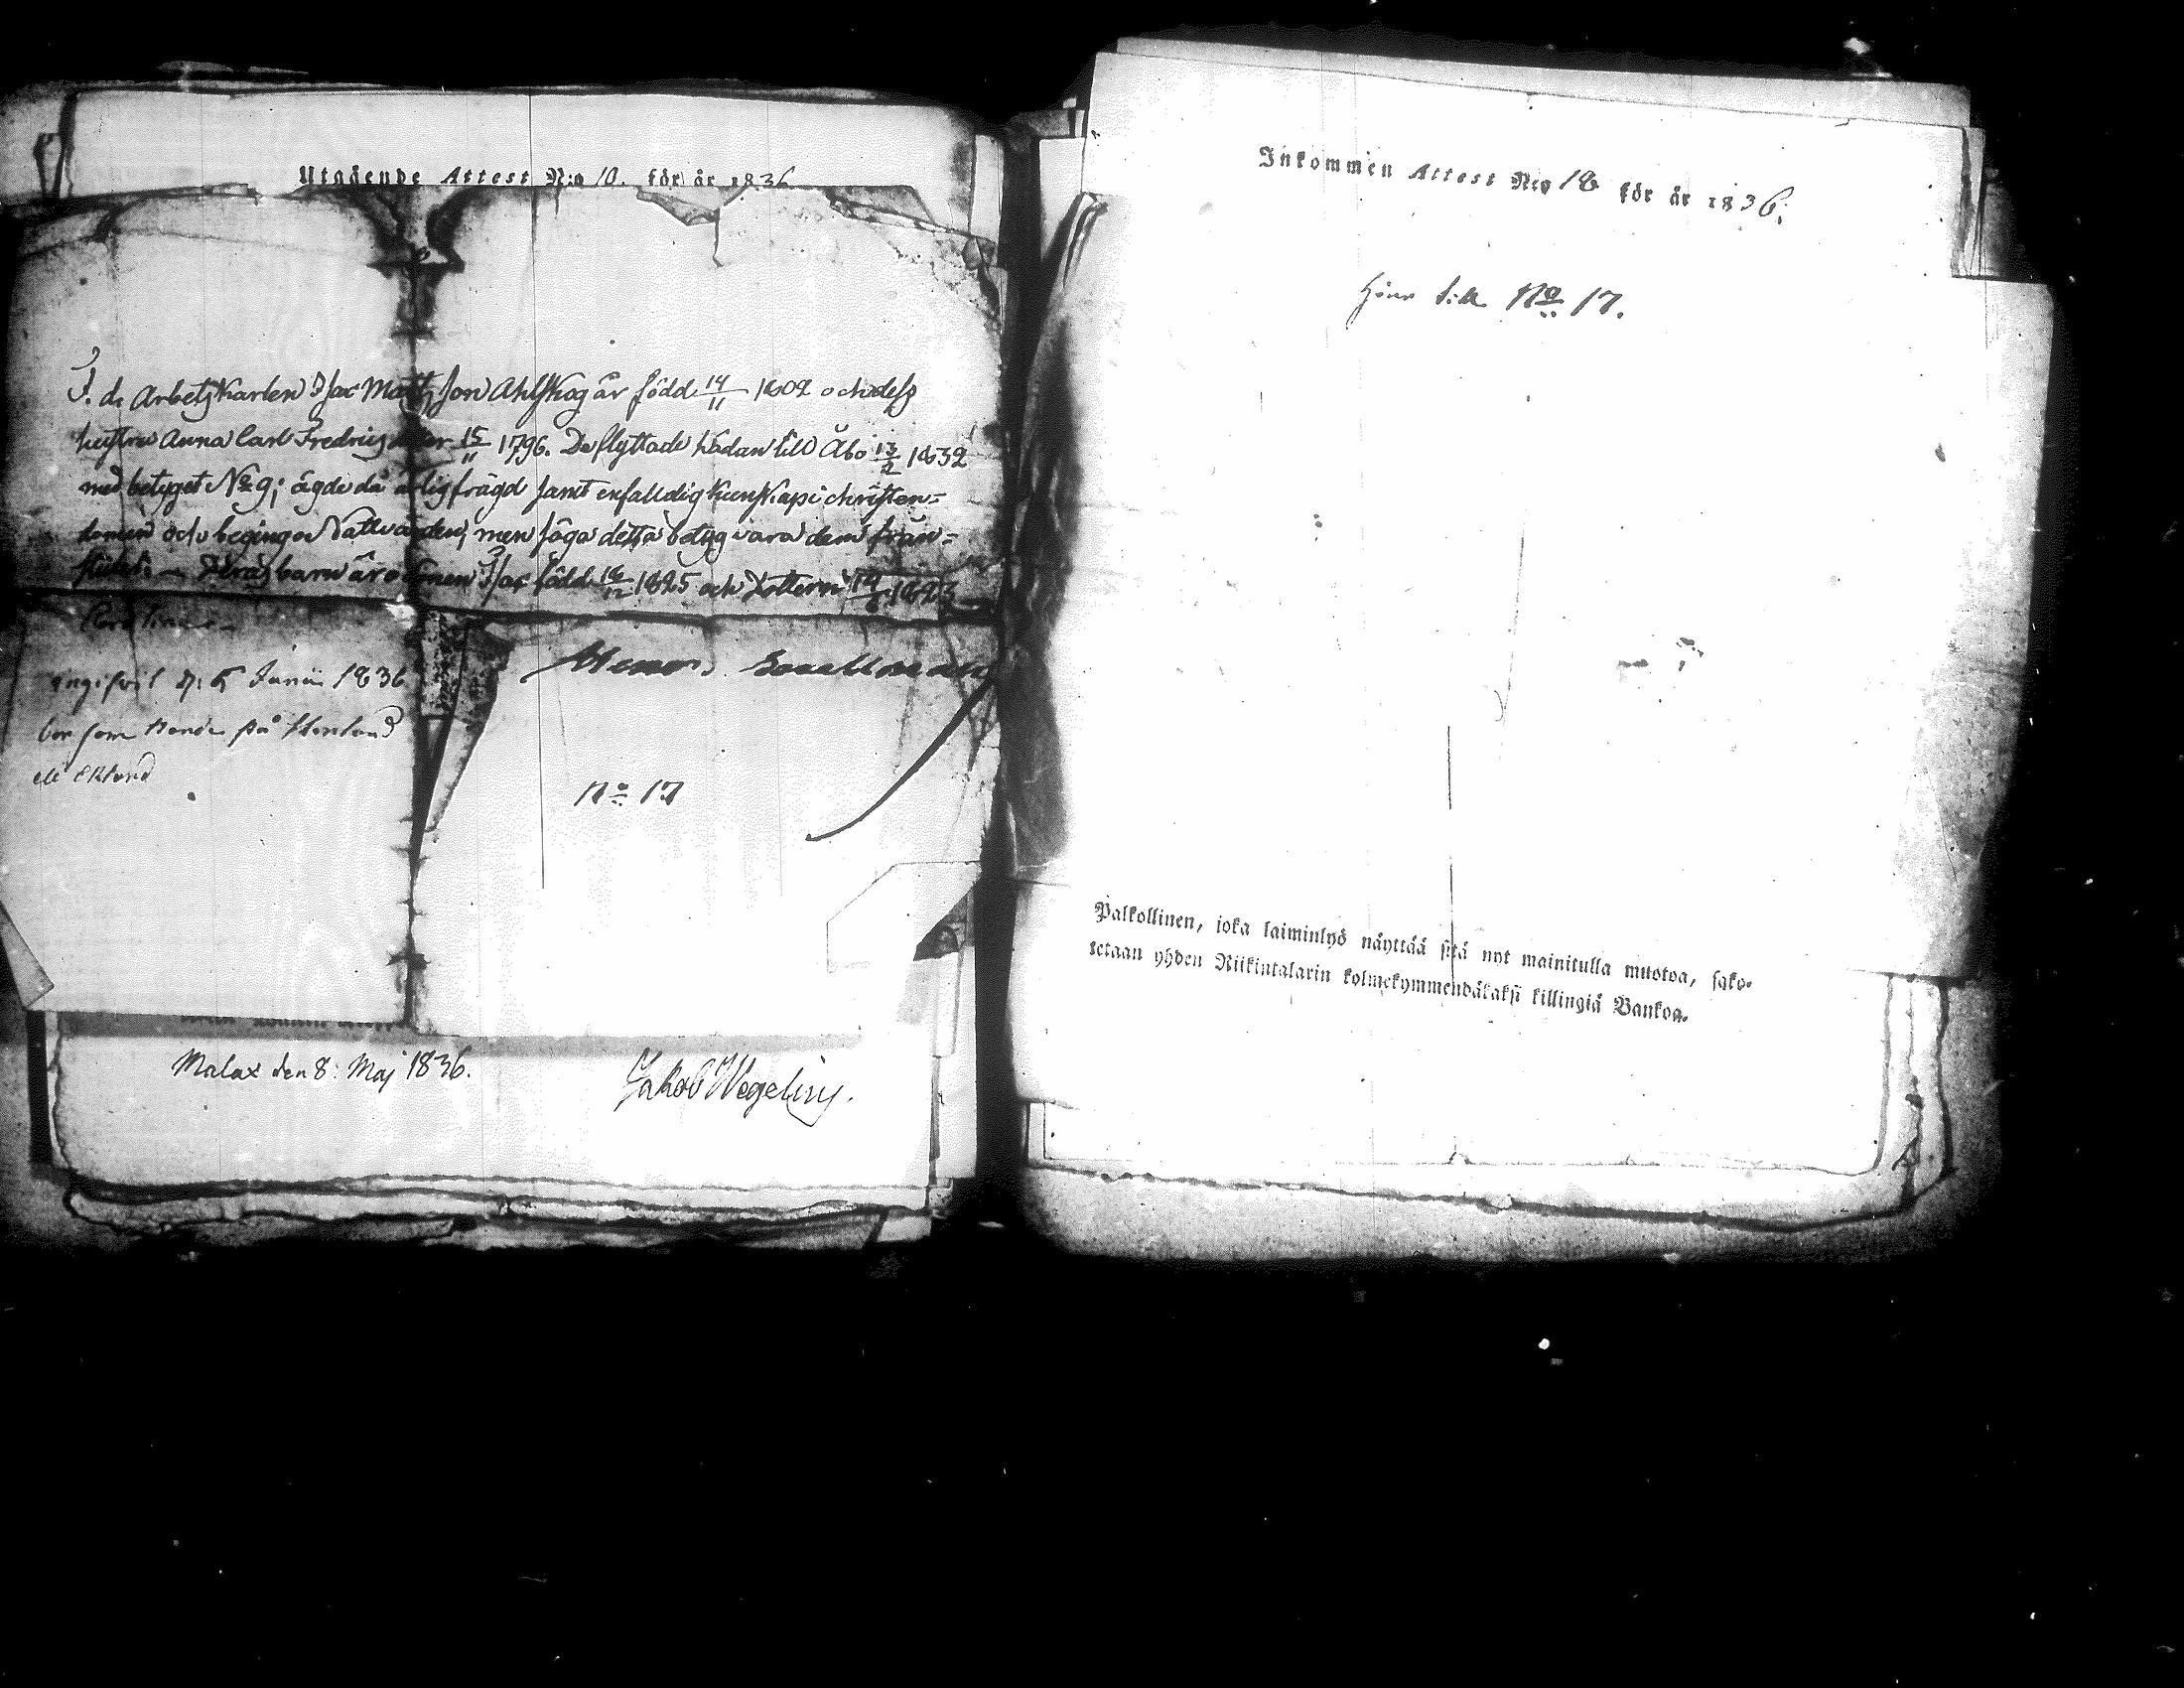 Utgående Attest N:o 10. för år 1836
F. d. Arbetskarlen Isac Matts son Ahlskog är född 14/11 1802 och dess
hustru Anna Carl Fredrics dotter 15/11 1796. De flyttade hädan till Åbo 13/2 1832
med betyget No 9; ägde då ärlig frägd samt enfaldig kunskap i christen-
domen och begingo Nattvarden; men säga detta betyg vara dem från-
stulet. — Deras barn äro sonen Isac född 18/12 1825 och Dottern 14/6 1823
Carolina
ingifvit d: 5 Junii 1836
bor som
Eklund
No 17
Malax den 8: Maj 1836.
Jakob Wegelius.
Inkommen Attest N:o 18 för år 1836.
Hörer till No 17.
Palkollinen, joka laiminlyö näyttää sitä nyt mainitulla muotoa, sako-
tetaan yhden Riikintalarin kolmekymmendäkaksi killingiä Bankoa.